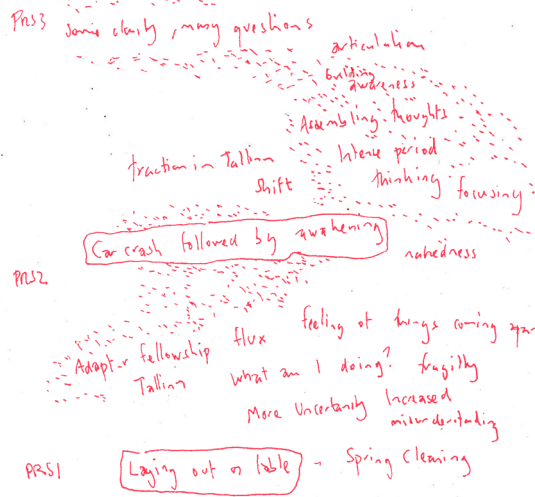 PRS3 Some clarity, many questions
articulation
building awareness
Assembling thoughts
Intense period
thinking focusing
traction in Tallinn
shift
Car crash followed by awakening
nakedness
PRS2
feeling of things coming apar
Adapt-r fellowship flux
Tallinn What am I doing? fragility
More Uncertainty Increased
misunderstanding
PRS1 Laying out on table - Spring Cleaning